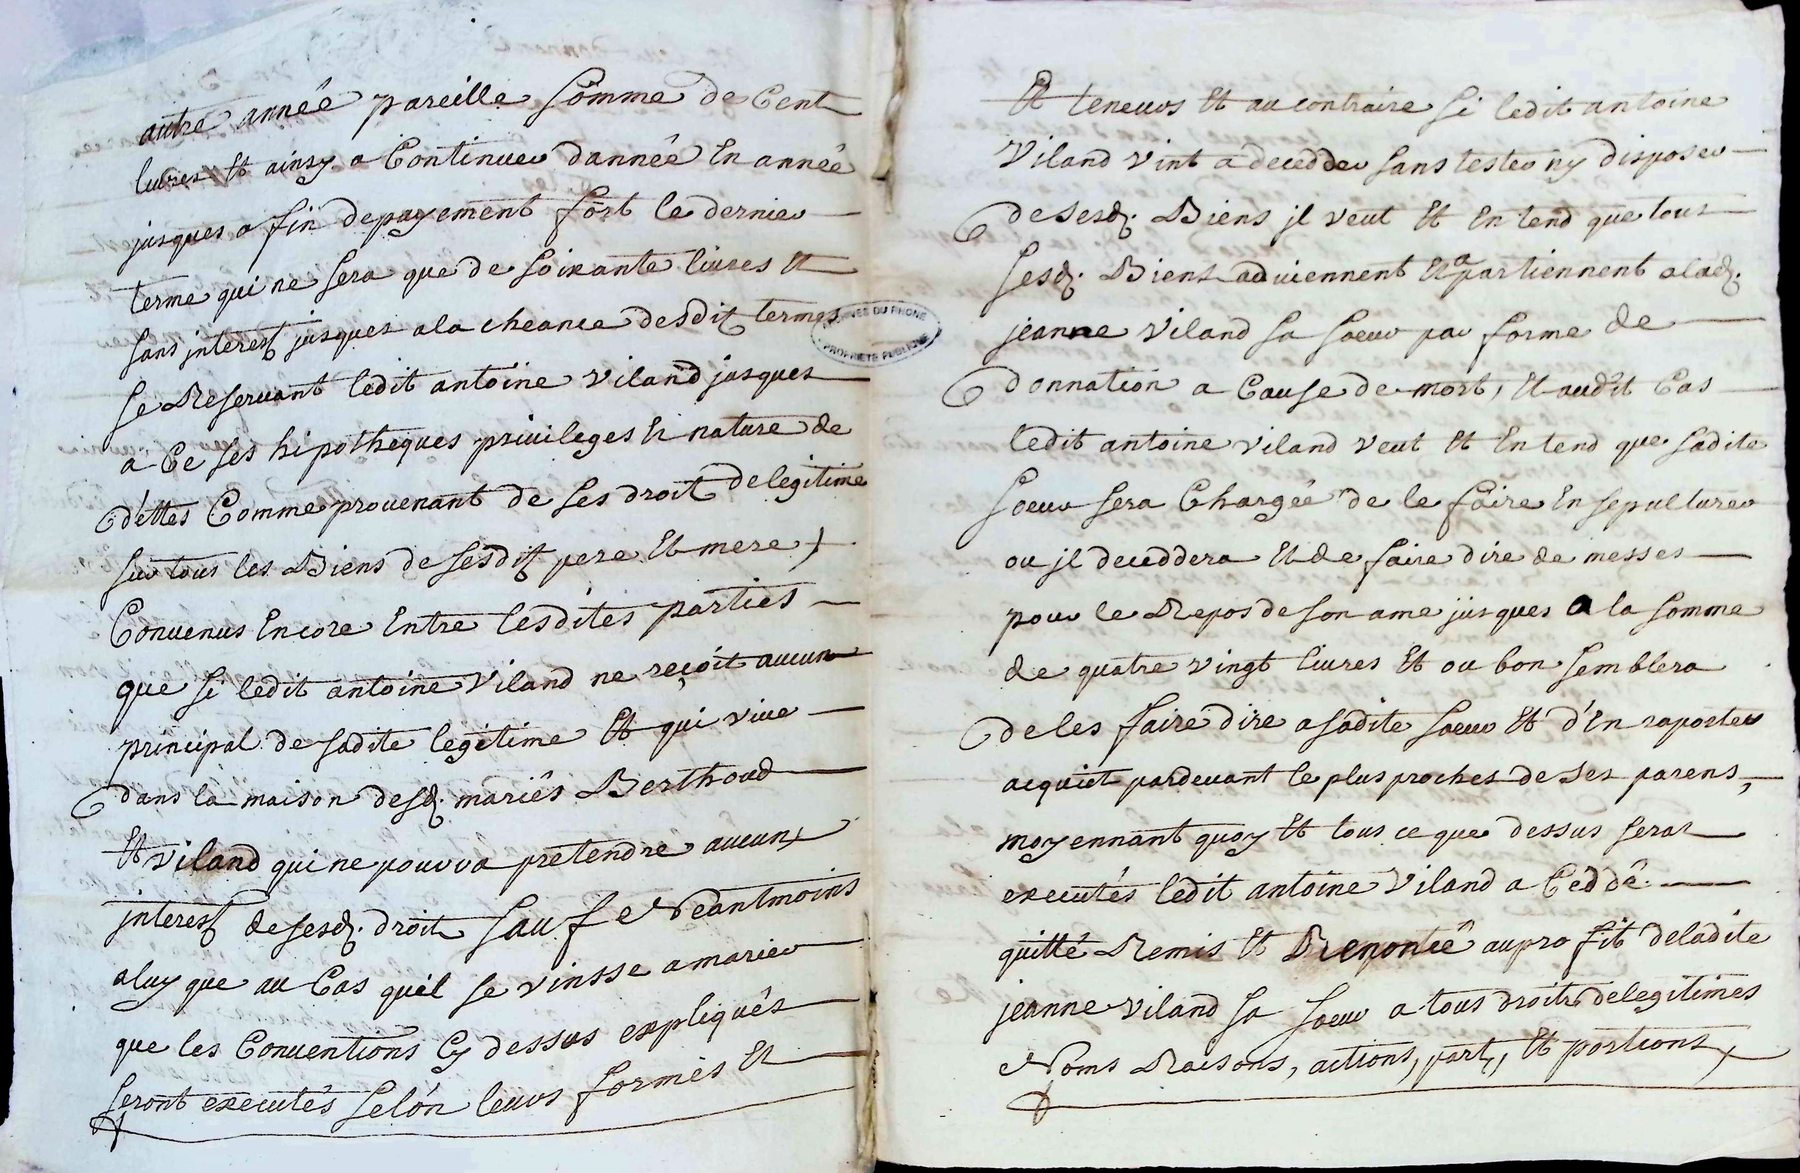 autre année pareille somme de Cent
livres Et ainsy a Continuer dannée En année
jusques a fin depayement fort le dernier
terme qui ne sera que de soixante livres Et
sans interest jusques ala cheance desdit termes
se Reservant ledit antoine viland jusques
a Ce ses hipotheques privileges Et nature de
dettes Comme provenant de ses droit delegitime
sur tous les Biens de sesdit pere Et mere,
Convenus Encore Entre lesdites parties
que si ledit antoine Viland ne reçoit aucun
principal de sadite legitime Et qui vive
dans la maison desd. mariés Berthoud
Et viland qui ne pourra pretendre aucun
interest de sesd. droit sauf Neantmoins
aluy que au Cas quil se vinsse a marier
que les Conventions Cy dessus expliqués
seront executés selon leurs formes Et
ARCHIVES DU RHONE
PROPRIETE PUBLIQUE
Et teneurs Et au contraire si ledit antoine
Viland vint a decedder sans tester ny disposer
de sesd. Biens jl veut Et Entend que tous
sesd. Biens adviennent Et apartiennent a lad.
jeanne viland sa soeur par forme de
donnation a Cause de mort, Et audit Cas
ledit antoine viland veut Et Entend que sadite
soeur sera Chargée de le faire Ensepulturer
ou jl deceddera Et de faire dire de messes
pour le Repos de son ame jusques a la somme
de quatre vingt livres Et ou bon semblera
de les faire dire a sadite soeur Et d'En raporter
acquict pardevant le plus proches de ses parens,
moyennant quoy Et tous ce que dessus seront
executés ledit antoine Viland a Ceddé
quitté Remis Et Renoncé au profit deladite
jeanne viland sa soeur a tous droits delegitimes
Noms Raisons, actions, part, Et portions,